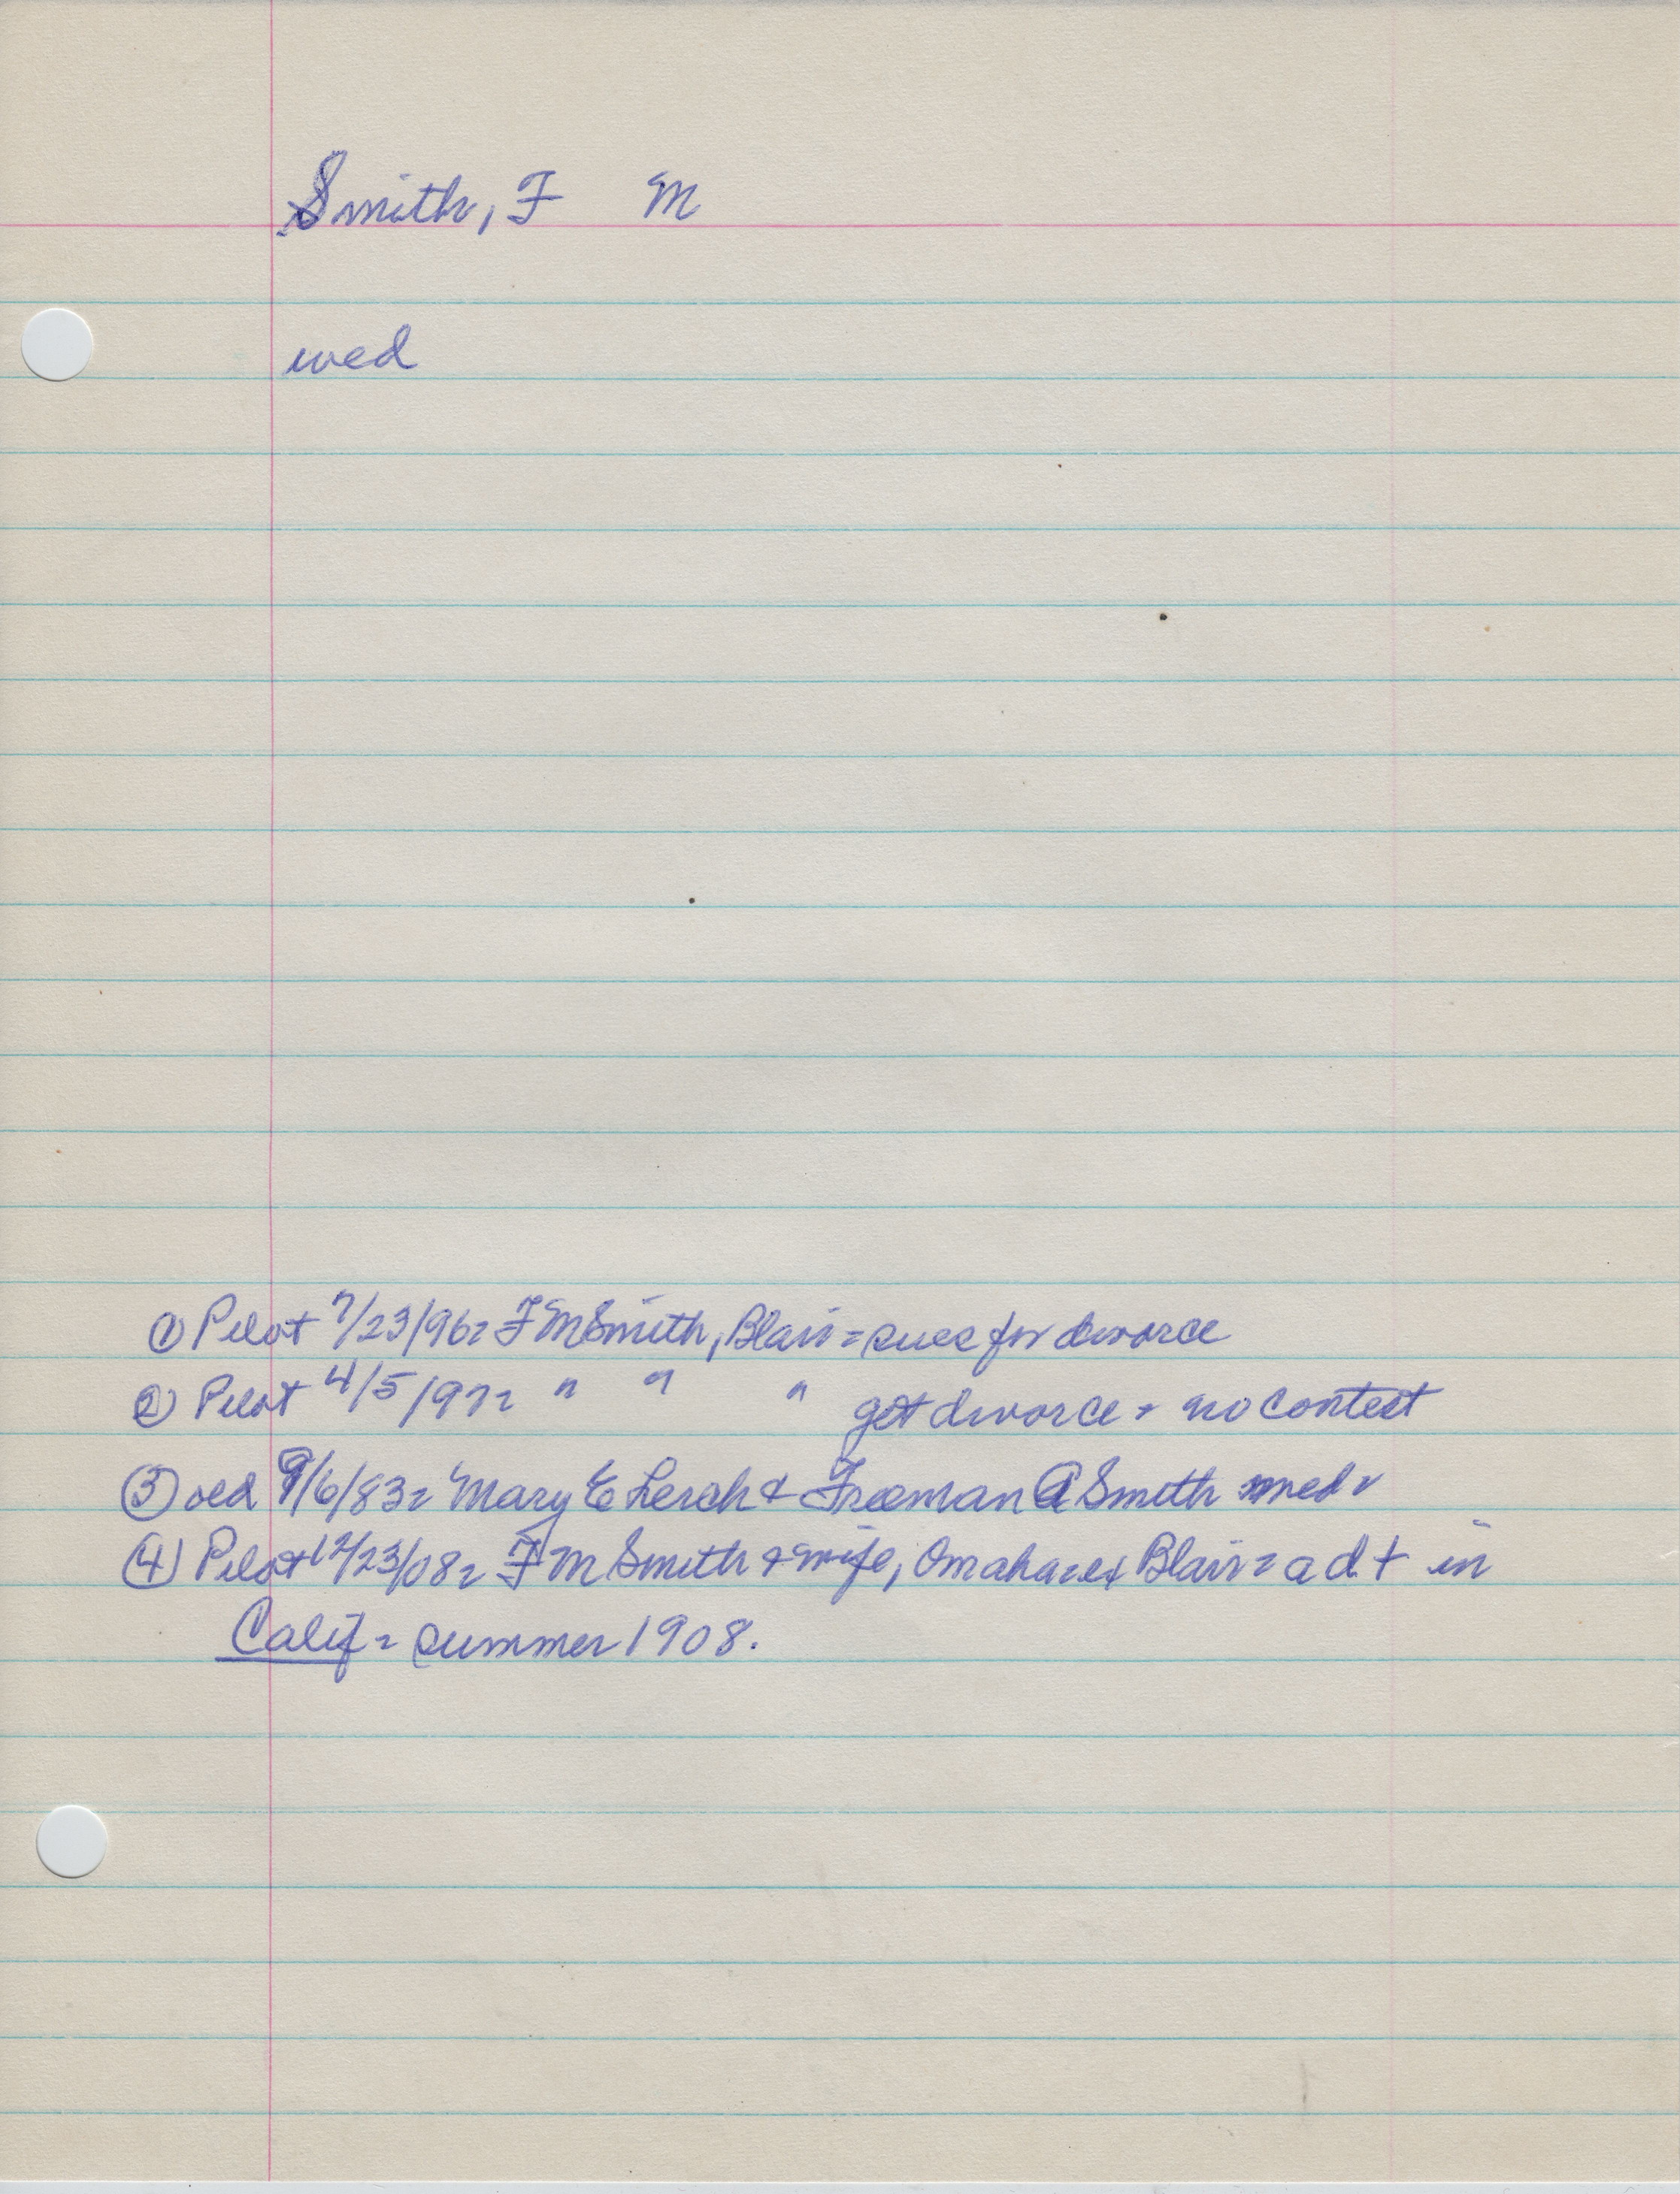 Smith, F M
wed
① Pilot 7/23/96= F M Smith, Blair = sues for divorce
② Pilot 4/5/97= " " " get divorce - no contest
③ old 9/6/83= Mary E Lerch & Freeman A Smith wed
④ Pilot 12/23/08= F M Smith & wife, Omaha=ex Blair= a d.t in
Calif = summer 1908.